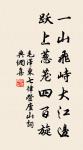 一山飛峙大江邊
躍上蔥蘢四百旋
毛澤東七律登廬山詞
典網喜